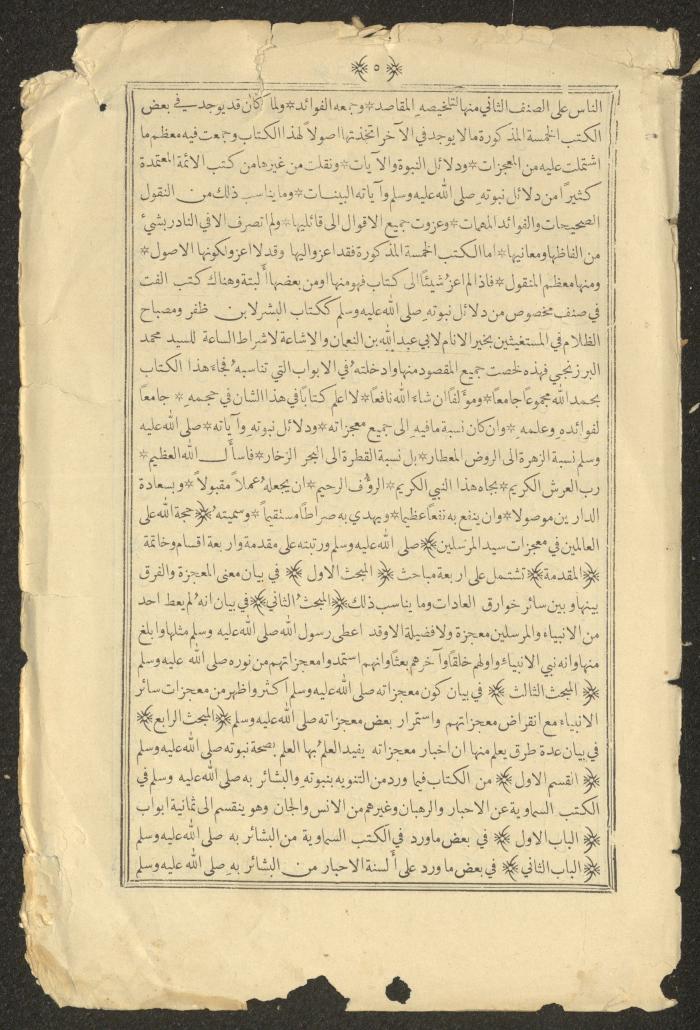 ٥
الناس على الصنف الثاني منها لتلخيصه المقاصد * وجمعه الفوائد * ولما كان قد يوجد في بعض
الكتب الخمسة المذكورة مالا يوجد في الآخر اتخذتها اصولاً لهذا الكتاب وجمعت فيه معظم ما
اشتملت عليه من المعجزات * ودلائل النبوة والآيات * ونقلت من غيرها من كتب الائمة المعتمدة
كثيرًا من دلائل نبوته صلى الله عليه وسلم وآياته البينات * وما يناسب ذلك من النقول
الصحيحات والفوائد المهمات * وعزوت جميع الاقوال الى قائليها * ولم اتصرف الا في النادر بشيء
من الفاظها ومعانيها * اما الكتب الخمسة المذكورة فقد اعزو اليها وقد لا اعزو لكونها الاصول *
ومنها معظم المنقول * فاذا لم اعزُ شيئًا الى كتاب فهو منها او من بعضها أَلبتة وهناك كتب الفت
في صنف مخصوص من دلائل نبوته صلى الله عليه وسلم ككتاب البشر لابن ظفر ومصباح
الظلام في المستغيثين بخير الانام لابي عبد الله بن النعمان والاشاعة لاشراط الساعة للسيد محمد
البرزنجي فهذه لخصت جميع المقصود منها وادخلته في الابواب التي تناسبه فجاء هذا الكتاب
بحمد الله مجموعًا جامعًا * ومؤلفًا ان شاء الله نافعًا * لا اعلم كتابًا في هذا الشان في حجمه * جامعًا
لفوائده وعلمه * وان كان نسبة ما فيه الى جميع معجزاته * ودلائل نبوته وآياته * صلى الله عليه
وسلم نسبة الزهرة الى الروض المعطار * بل نسبة القطرة الى البحر الزخار * فاسأل الله العظيم *
رب العرش الكريم * بجاه هذا النبي الكريم * الرؤف الرحيم * ان يجعله عملاً مقبولاً * وبسعادة
الدارين موصولا * وان ينفع به نفعًا عظيما * ويهدي به صراطًا مستقيمًا * وسميته ﴿حجة الله على
العالمين في معجزات سيد المرسلين﴾ صلى الله عليه وسلم ورتبته على مقدمة واربعة اقسام وخاتمة
﴿المقدمة﴾ تشتمل على اربعة مباحث ﴿ المبحث الاول ﴾ في بيان معنى المعجزة والفرق
بينها وبين سائر خوارق العادات وما يناسب ذلك ﴿المبحث الثاني﴾ في بيان انه لم يعط احد
من الانبياء والمرسلين معجزة ولا فضيلة الا وقد اعطى رسول الله صلى الله عليه وسلم مثلها او ابلغ
منها وانه نبي الانبياء واولهم خلقًا وآخرهم بعثًا وانهم استمدوا معجزاتهم من نوره صلى الله عليه وسلم
﴿ المبحث الثالث ﴾ في بيان كون معجزاته صلى الله عليه وسلم اكثر واظهر من معجزات سائر
الانبياء مع انقراض معجزاتهم واستمرار بعض معجزاته صلى الله عليه وسلم ﴿المبحث الرابع﴾
في بيان عدة طرق يعلم منها ان اخبار معجزاته يفيد العلم بها العلم بصحة نبوته صلى الله عليه وسلم
﴿ القسم الاول ﴾ من الكتاب فيما ورد من التنويه بنبوته والبشائر به صلى الله عليه وسلم في
الكتب السماوية عن الاحبار والرهبان وغيرهم من الانس والجان وهو ينقسم الى ثمانية ابواب
﴿ الباب الاول ﴾ في بعض ما ورد في الكتب السماوية من البشائر به صلى الله عليه وسلم
﴿ الباب الثاني ﴾ في بعض ما ورد على أَلسنة الاحبار من البشائر به صلى الله عليه وسلم